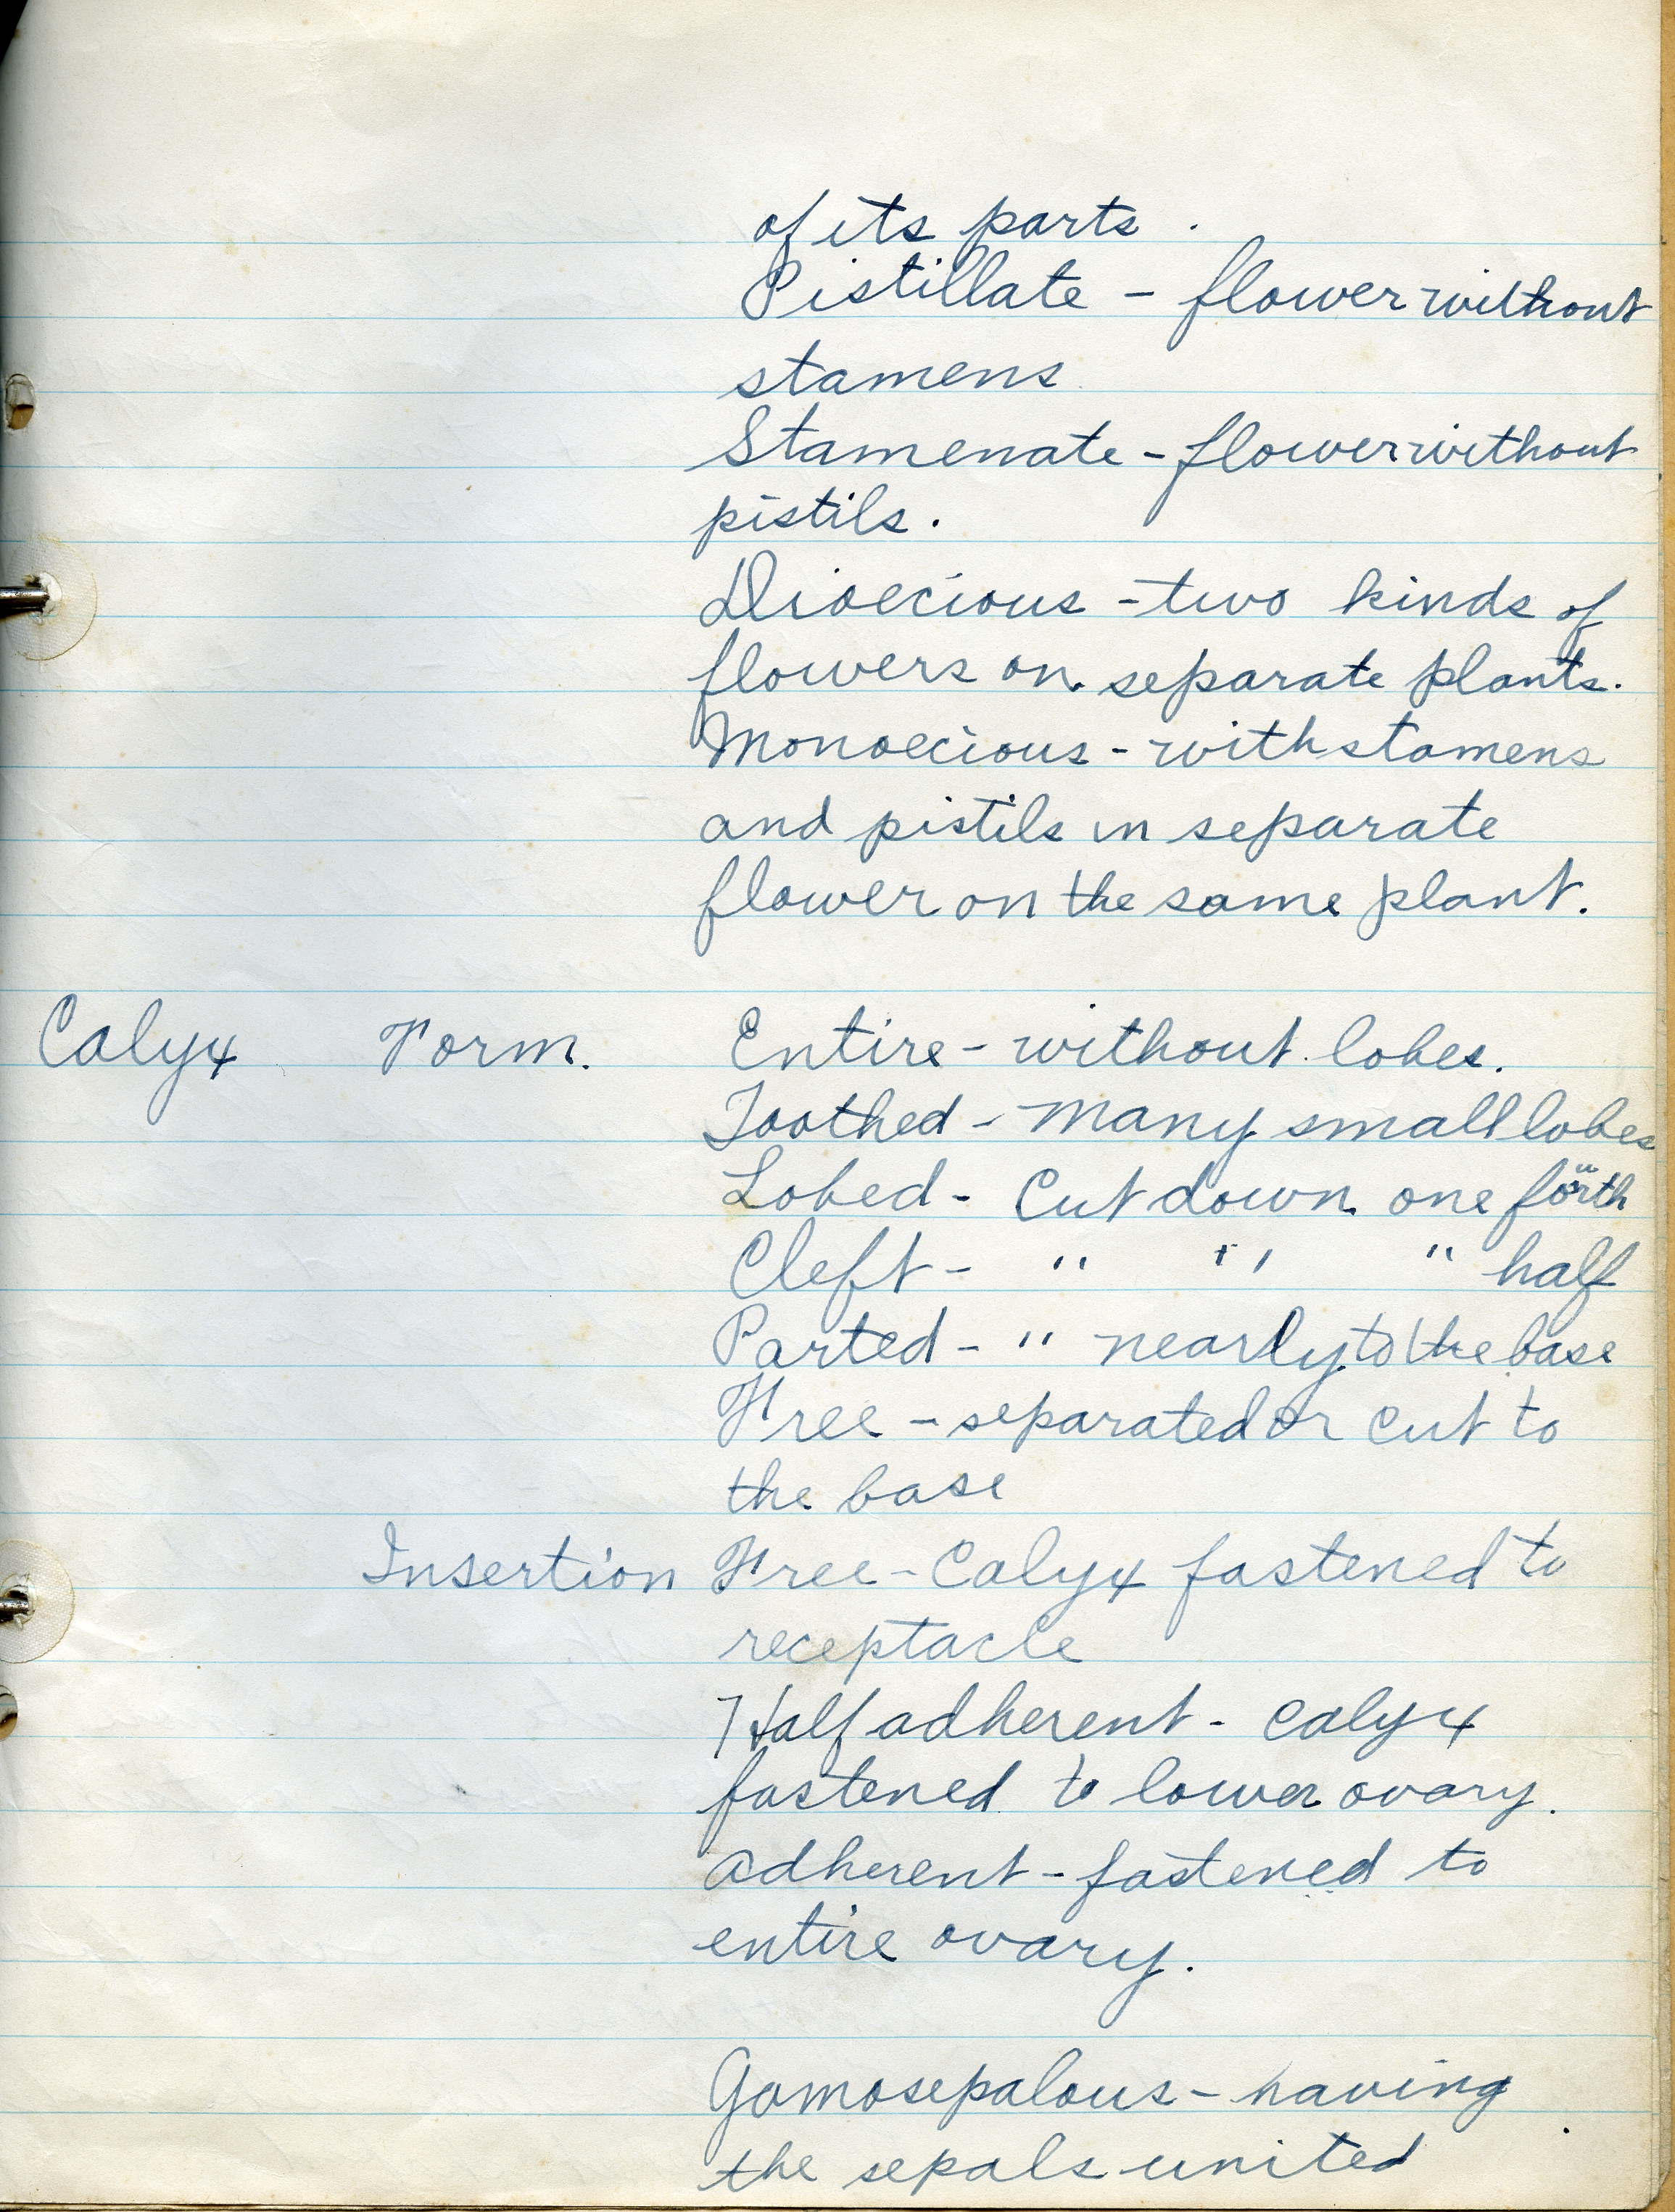 of its parts.
Pistillate - flower without
stamens
Stamenate - flower without
pistils.
Dioecious - two kinds of
flowers on separate plants.
Monoecious - with stamens
and pistils in separate
flower on the same plant.
Calyx Form. Entire - without lobes.
Toothed - many small lobes
Lobed - Cut down one fourth
Cleft - " " " half
Parted - " nearly to the base
Free - separated or cut to
the base
Insertion Free - Calyx fastened to
receptacle
Half adherent - calyx
fastened to lower ovary.
adherent - fastened to
entire ovary.
Gamosepalous - having
the sepals united